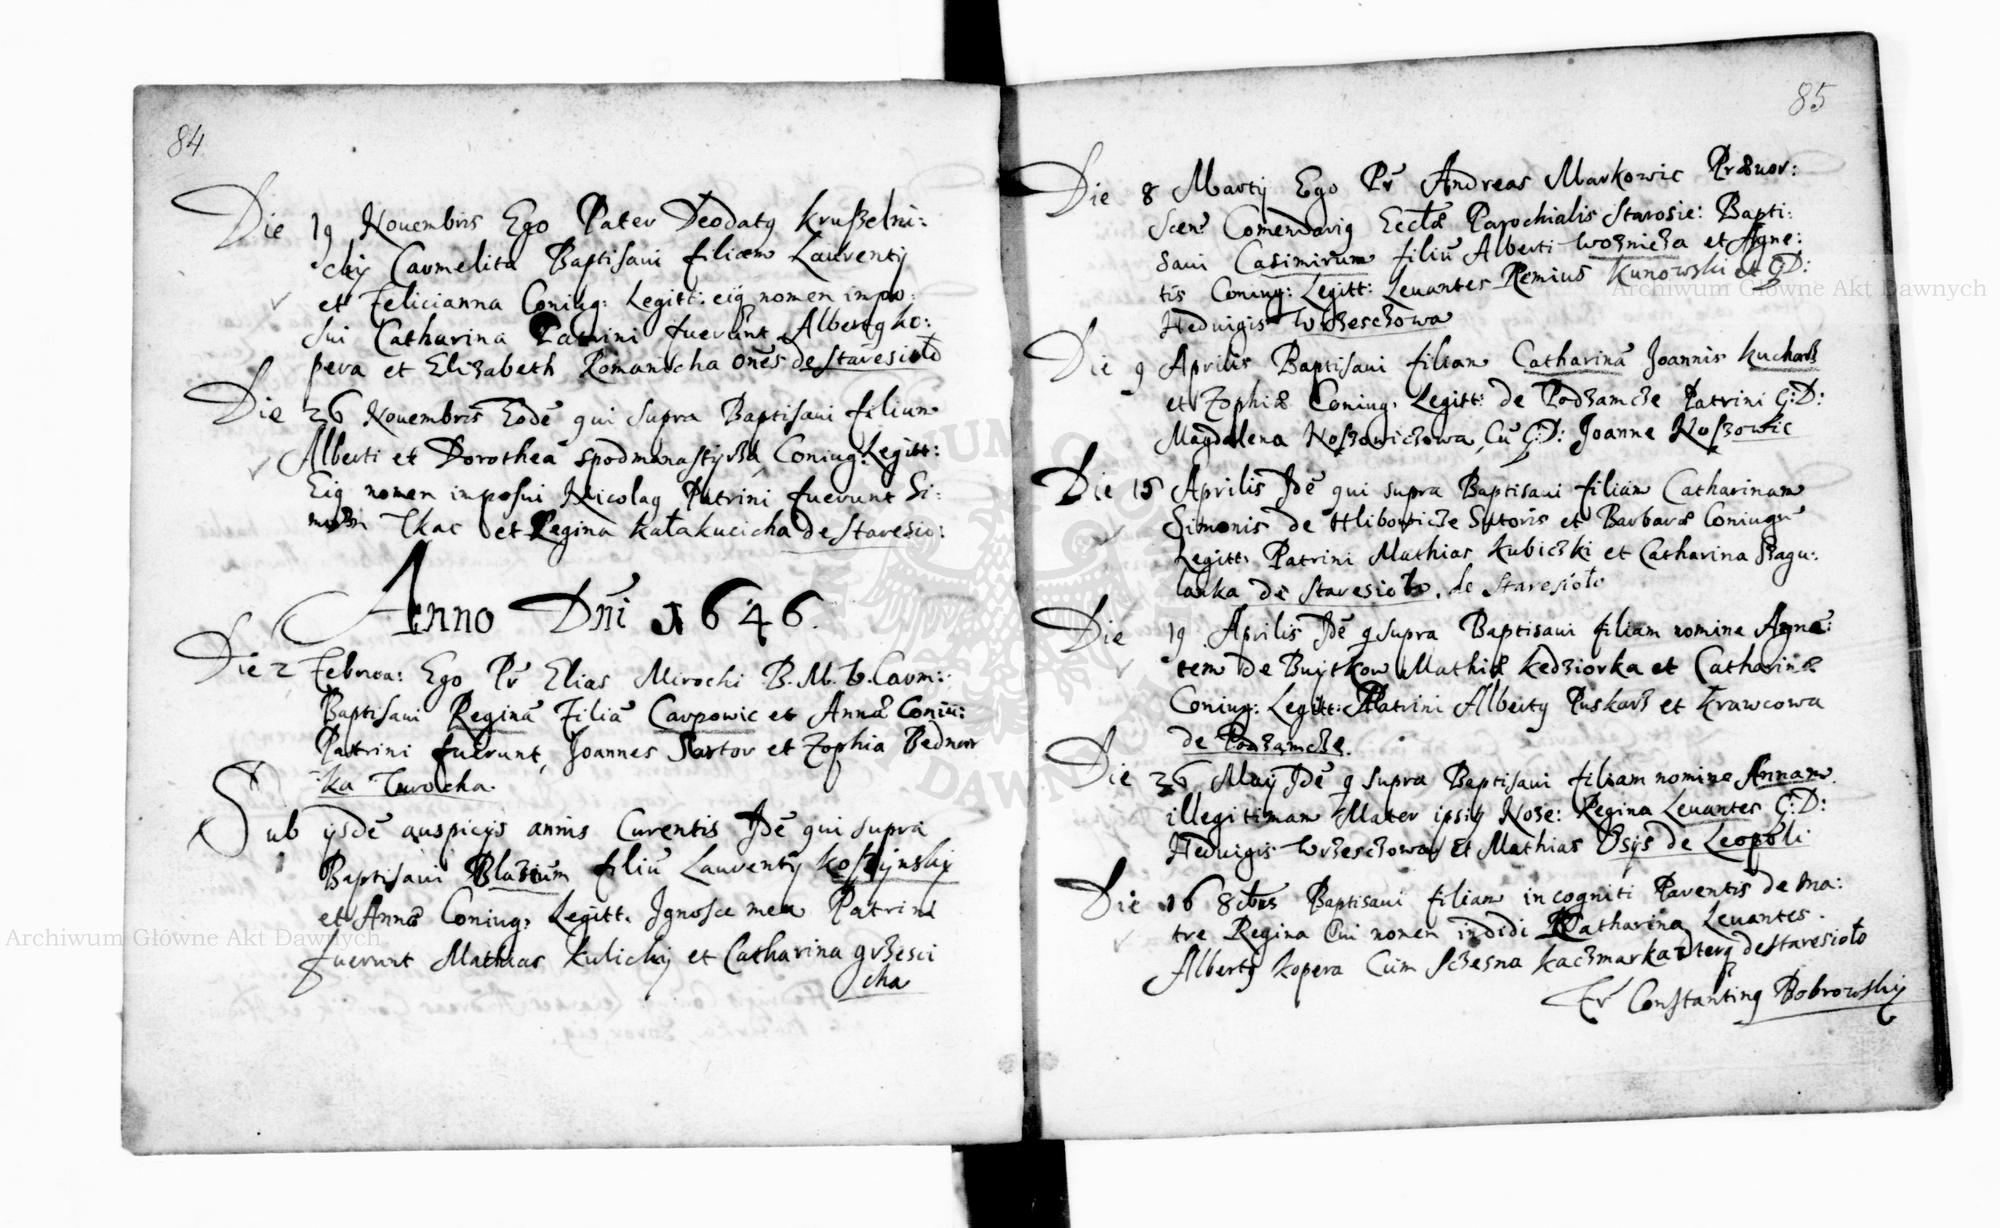 84
Die 19 Nouembris Ego Pater Deodatq Kruszelni:
ckij Carmelita Baptisaui filiam Laurentij
et Felicianna Coniug: Legitt: eiq nomen impo:
sui Catharina Patrini fuerunt Albertq Ko:
pera et Elizabeth Romanicha onēs de staresioło
Die 26 Nouembris Eodē qui supra Baptisaui filium
Alberti et Dorotheā Coniug: Legitt:
Eiq nomen imposui Nicolaq Patrini fuerunt Si:
mon Tkac et Regina Kałakucicha de Staresio:
Anno Dni 1646.
Die 2 Februa: Ego Pr Elias Mirochi B. M. V. Carm:
Baptisaui Reginā Filiā Carpowic et Annæ Coniu:
Patrini fuerunt, Joannes Sartor et Zophia Bednar
ka
Sub ijsdē auspicijs annis Curentis Jdē qui supra
Baptisaui Blasium filiū Laurentij
et Annæ Coniug: Legitt. Jgnosce mea Patrini
fuerunt Mathias Kulickij et Catharina grzesci
cha
85
Die 8 Martij Ego Pr Andreas Markowic
Comendariq Ecclæ Parochialis Starosie: Bapti:
saui Casimirum filiū Alberti Woznicza et Agne:
tis Coniug: Legitt: Leuantes Remius Kunowski et G:D:
Heduigis Wrzeschowa
Die 9 Aprilis Baptisaui filiam Catharinā Joannis Kucharz
et Zophiæ Coniug: Legitt: de Podzamcze Patrini G:D:
Magdalena Noszowiczowa, Cū G:D: Joanne Noszowic
Die 15 Aprilis Jdē qui supra Baptisaui filiam Catharinam
Simonis de Hlibowicze Sutoris et Barbaræ Coniugū
Legitt: Patrini Mathias Kubiczki et Catharina
de Staresioło. de Staresioło
Die 19 Aprilis Jdē q supra Baptisaui filiam nomine Agne:
tem de Buytkow Mathiæ Kedziorka et Catharinæ
Coniug: Legitt: Patrini Albertq Puskarz et Krawcowa
de Podzamcze.
Die 26 Maij Jdē q supra Baptisaui filiam nomine Annam.
illegitimam Mater ipsiq Roze: Regina Leuantes G:D:
Heduigis Wrzeschowa et Mathias de Leopoli
Die 16 8cbris Baptisaui filiam incogniti Parentis de ma:
tre Regina Cui nomen indidi Catharina Leuantes.
Albertq Kopera Cum Sczesna Kaczmarka de staresioło
Fr Constantinq Bobrowskij
Archiwum Główne Akt Dawnych
Archiwum Główne Akt Dawnych